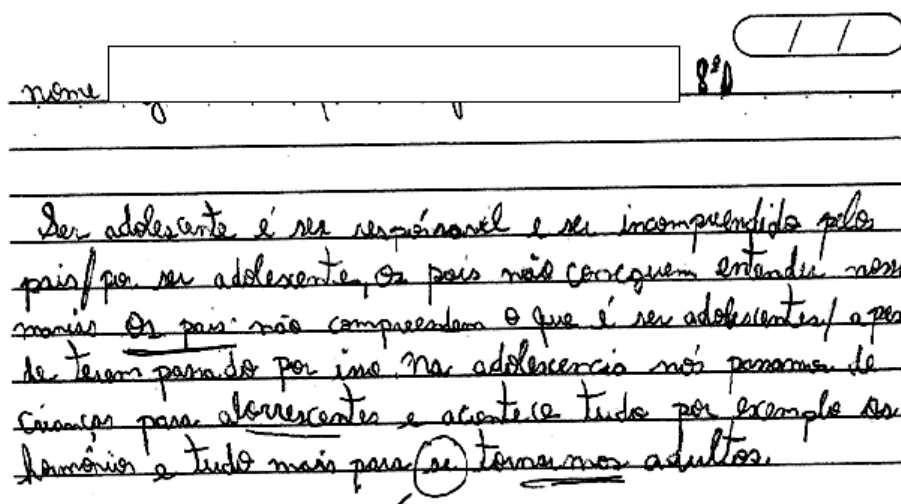 nome 8ºD
Ser adolescente é ser respónsavél e ser incompreendido pelos
pais/por ser adolescente, os pais não conceguem entender noss
manias Os pais não compreendem o que é ser adolescentes/ a pes
de terem passado por isso. Na adolescencia nós passamos de
crianças para aborrescentes e acontece tudo por exemplo os
hormônios e tudo mais para se tornarmos adultos.